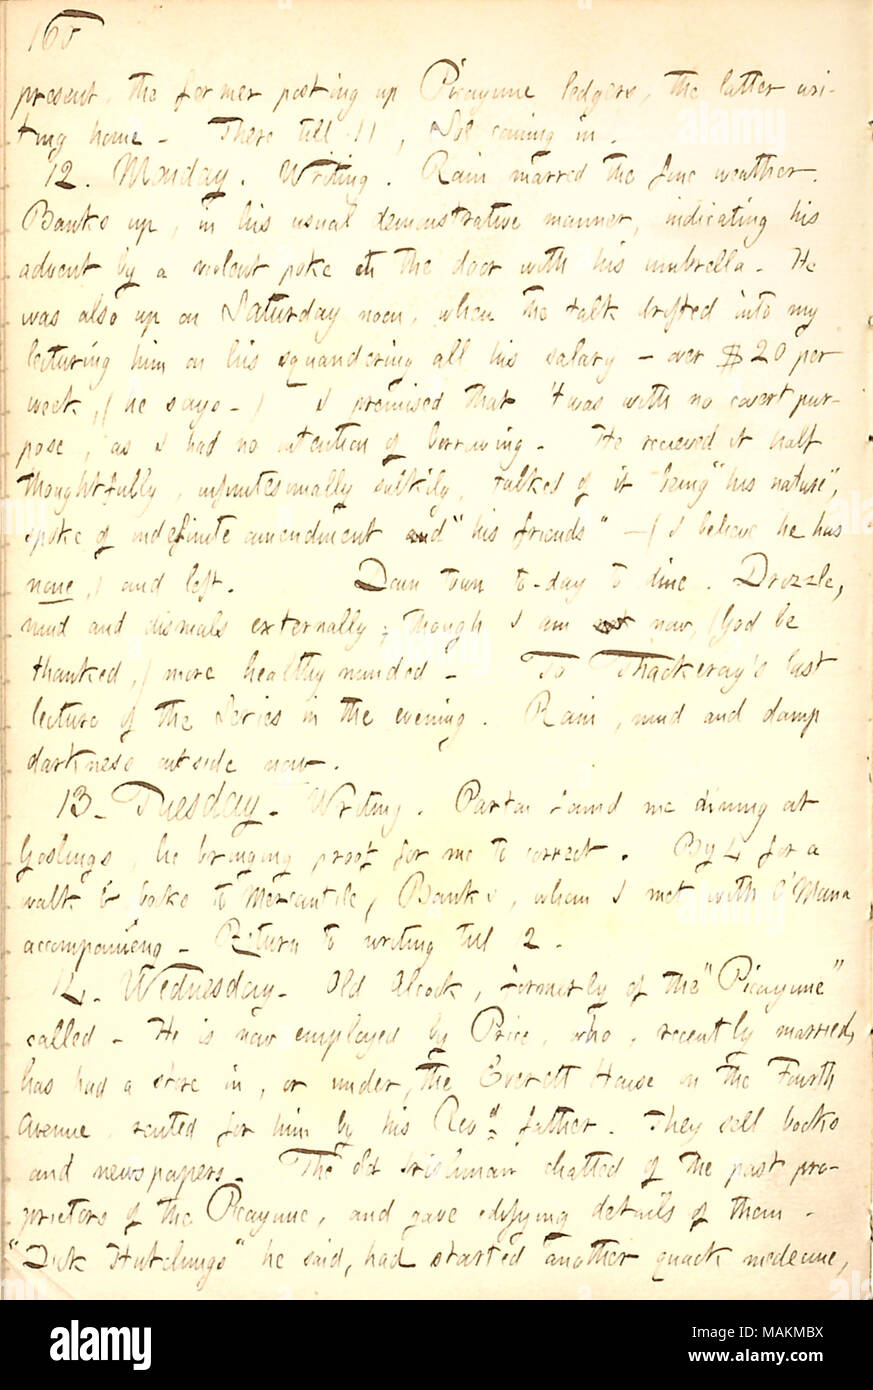 160
present, the former posting up Picayune ledgers, the latter wri-
ting home. There till 11, Sol coming in.
12. Monday. Writing. Rain marred the fine weather.
Banks up, in his usual demonstrative manner, indicating his
advent by a violent poke at the door with his umbrella. He
was also up on Saturday noon, when the talk drifted into my
lecturing him on his squandering all his salary — over $20 per
week, (he says.) I promised that 'twas with no covert pur-
pose, as I had no intention of borrowing. He recieved it half
thoughtfully, infinitesimally sulkily, talked of it being "his nature",
spoke of indefinite amendment and "his friends" — (I believe he has
none,) and left. Down town to-day to dine. Drizzle,
mud and dismals externally; though I am now, (God be
thanked,) more healthy minded. To Thackeray's last
lecture of the Series in the evening. Rain, mud and damp
darkness outside now.
13. Tuesday. Writing. Parton found me dining at
Goslings, he bringing proof for me to correct. By 4 for a
walk & books to Mercantile, Banks, whom I met with O'Mana
accompanieng. Return to writing till 2.
14. Wednesday. Old Alcock, formerly of the "Picayune"
called. He is now employed by Price, who, recently married,
has had a store in, or under, the Everett House on the Fourth
Avenue, rented for him by his Revd father. They sell books
and newspapers. The old Irishman chatted of the past pro-
prietors of the Picayune, and gave edifying details of them.
"Dick Hutchings" he said, had started another quack medecine,
alamy
Image ID: MAKMBX
www.alamy.com